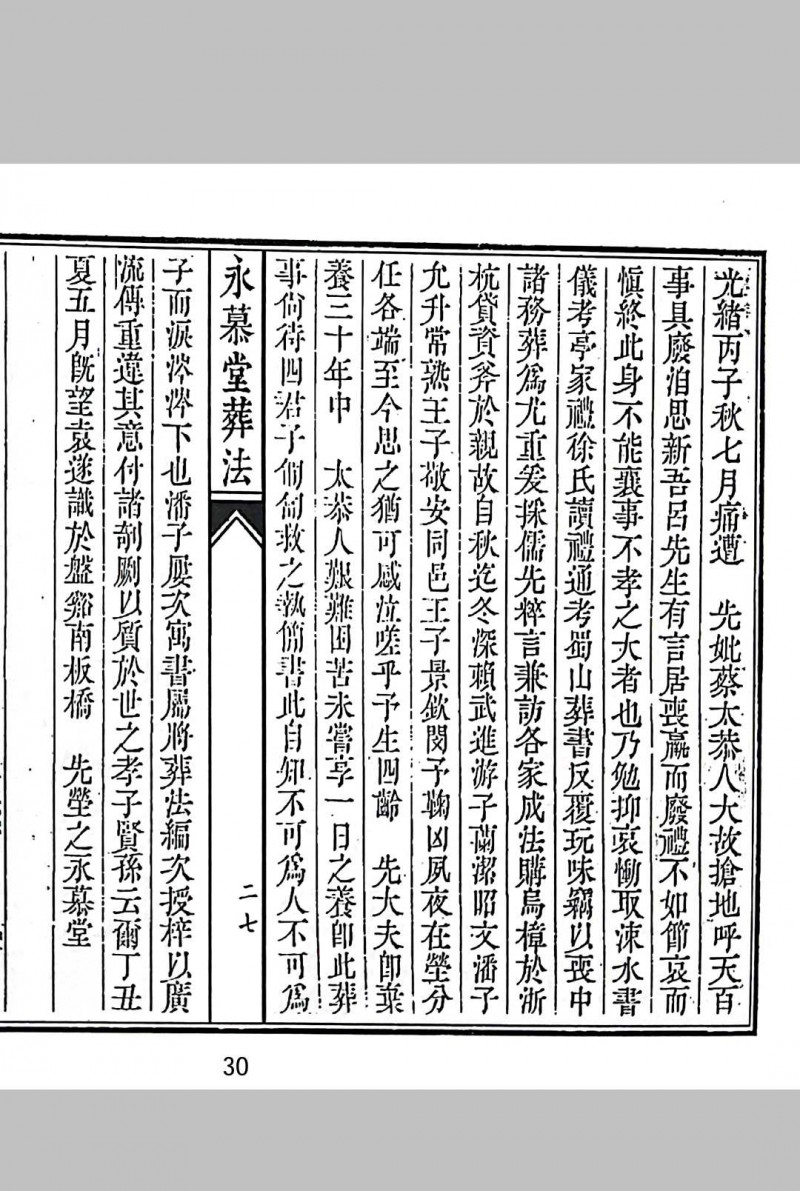 光緒丙子秋七月痛遭　先妣蔡太恭人大故搶地呼天百
事具廢洎思新吾呂先生有言居喪羸而廢禮不如節哀而
慎終此身不能襄事不孝之大者也乃勉抑哀慟取涑水書
儀考亭家禮徐氏讀禮通考蜀山葬書反覆玩味竊以喪中
諸務葬爲尤重爰採儒先粹言兼訪各家成法購烏樟於浙
杭貸資斧於親故自秋迄冬深賴武進游子蘭潔昭文潘子
允升常熟王子敬安同邑王子景欽閔予鞠凶夙夜在塋分
任各端至今思之猶可感泣嗟乎予生四齡　先大夫卽棄
養三十年中　太恭人艱難困苦未嘗享一日之養卽此葬
事何待四君子匍匐救之執簡書此自知不可爲人不可爲
永慕堂葬法
二七
子而淚涔涔下也潘子屢次寓書屬將葬法編次授梓以廣
流傳重違其意付諸剞劂以質於世之孝子賢孫云爾丁丑
夏五月旣望袁遂識於盤谿南板橋　先塋之永慕堂
30